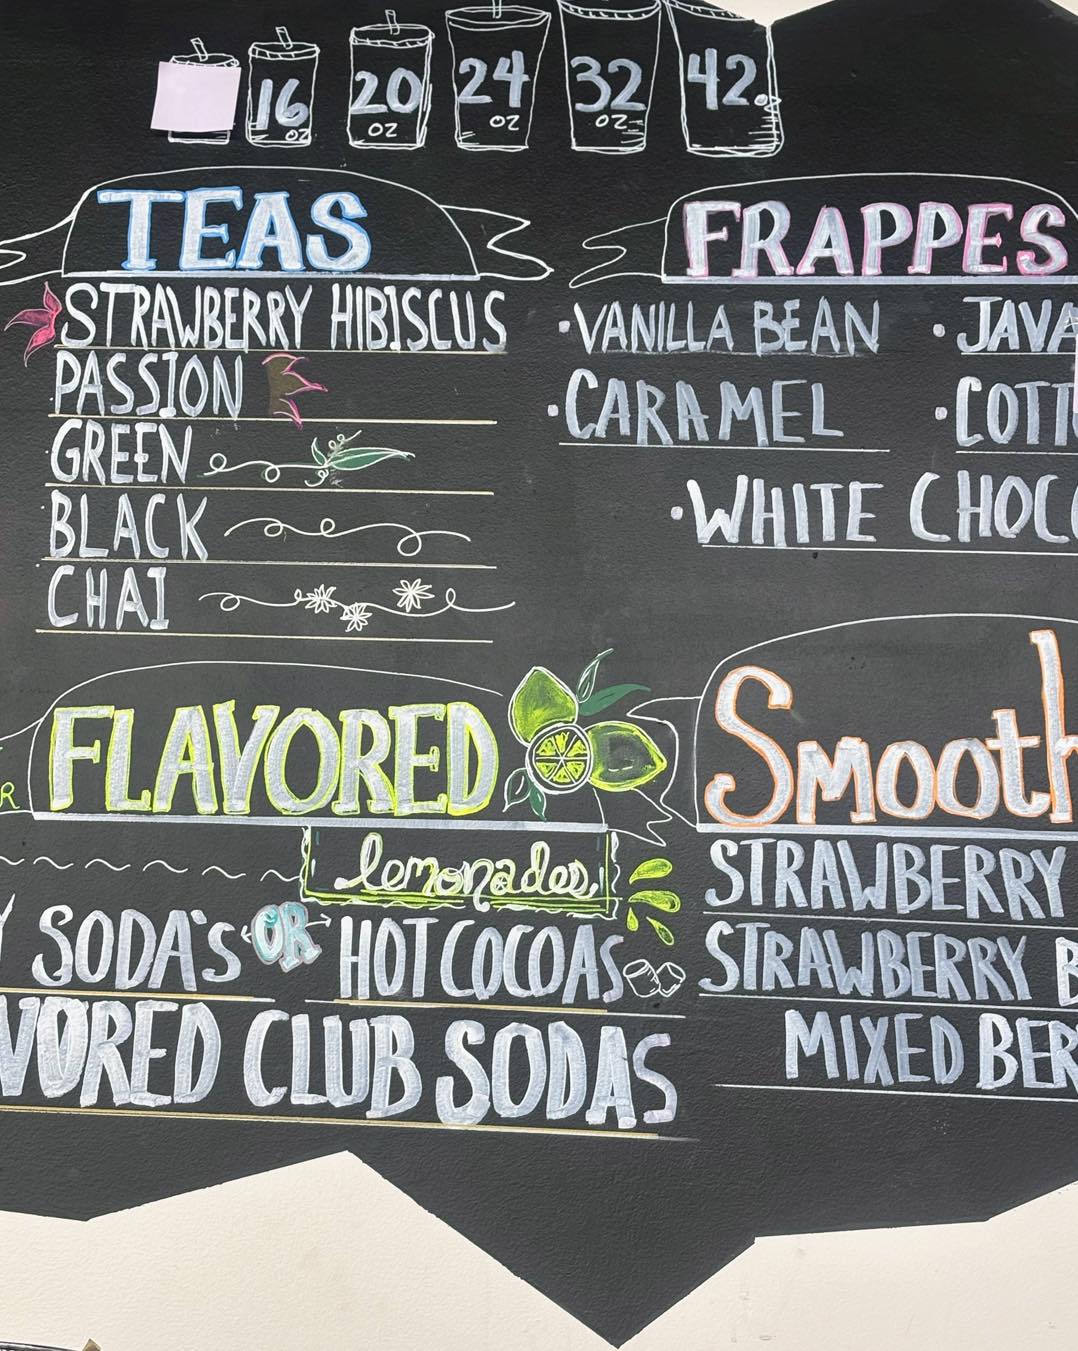 16 oz
20 oz
24 oz
32 oz
42 oz
TEAS
STRAWBERRY HIBISCUS
PASSION
GREEN
BLACK
CHAI
FRAPPES
VANILLA BEAN
JAVA
CARAMEL
COTT
WHITE CHOC
FLAVORED
lemonades
SODA'S OR HOT COCOAS
VORED CLUB SODAS
Smooth
STRAWBERRY
STRAWBERRY B
MIXED BER